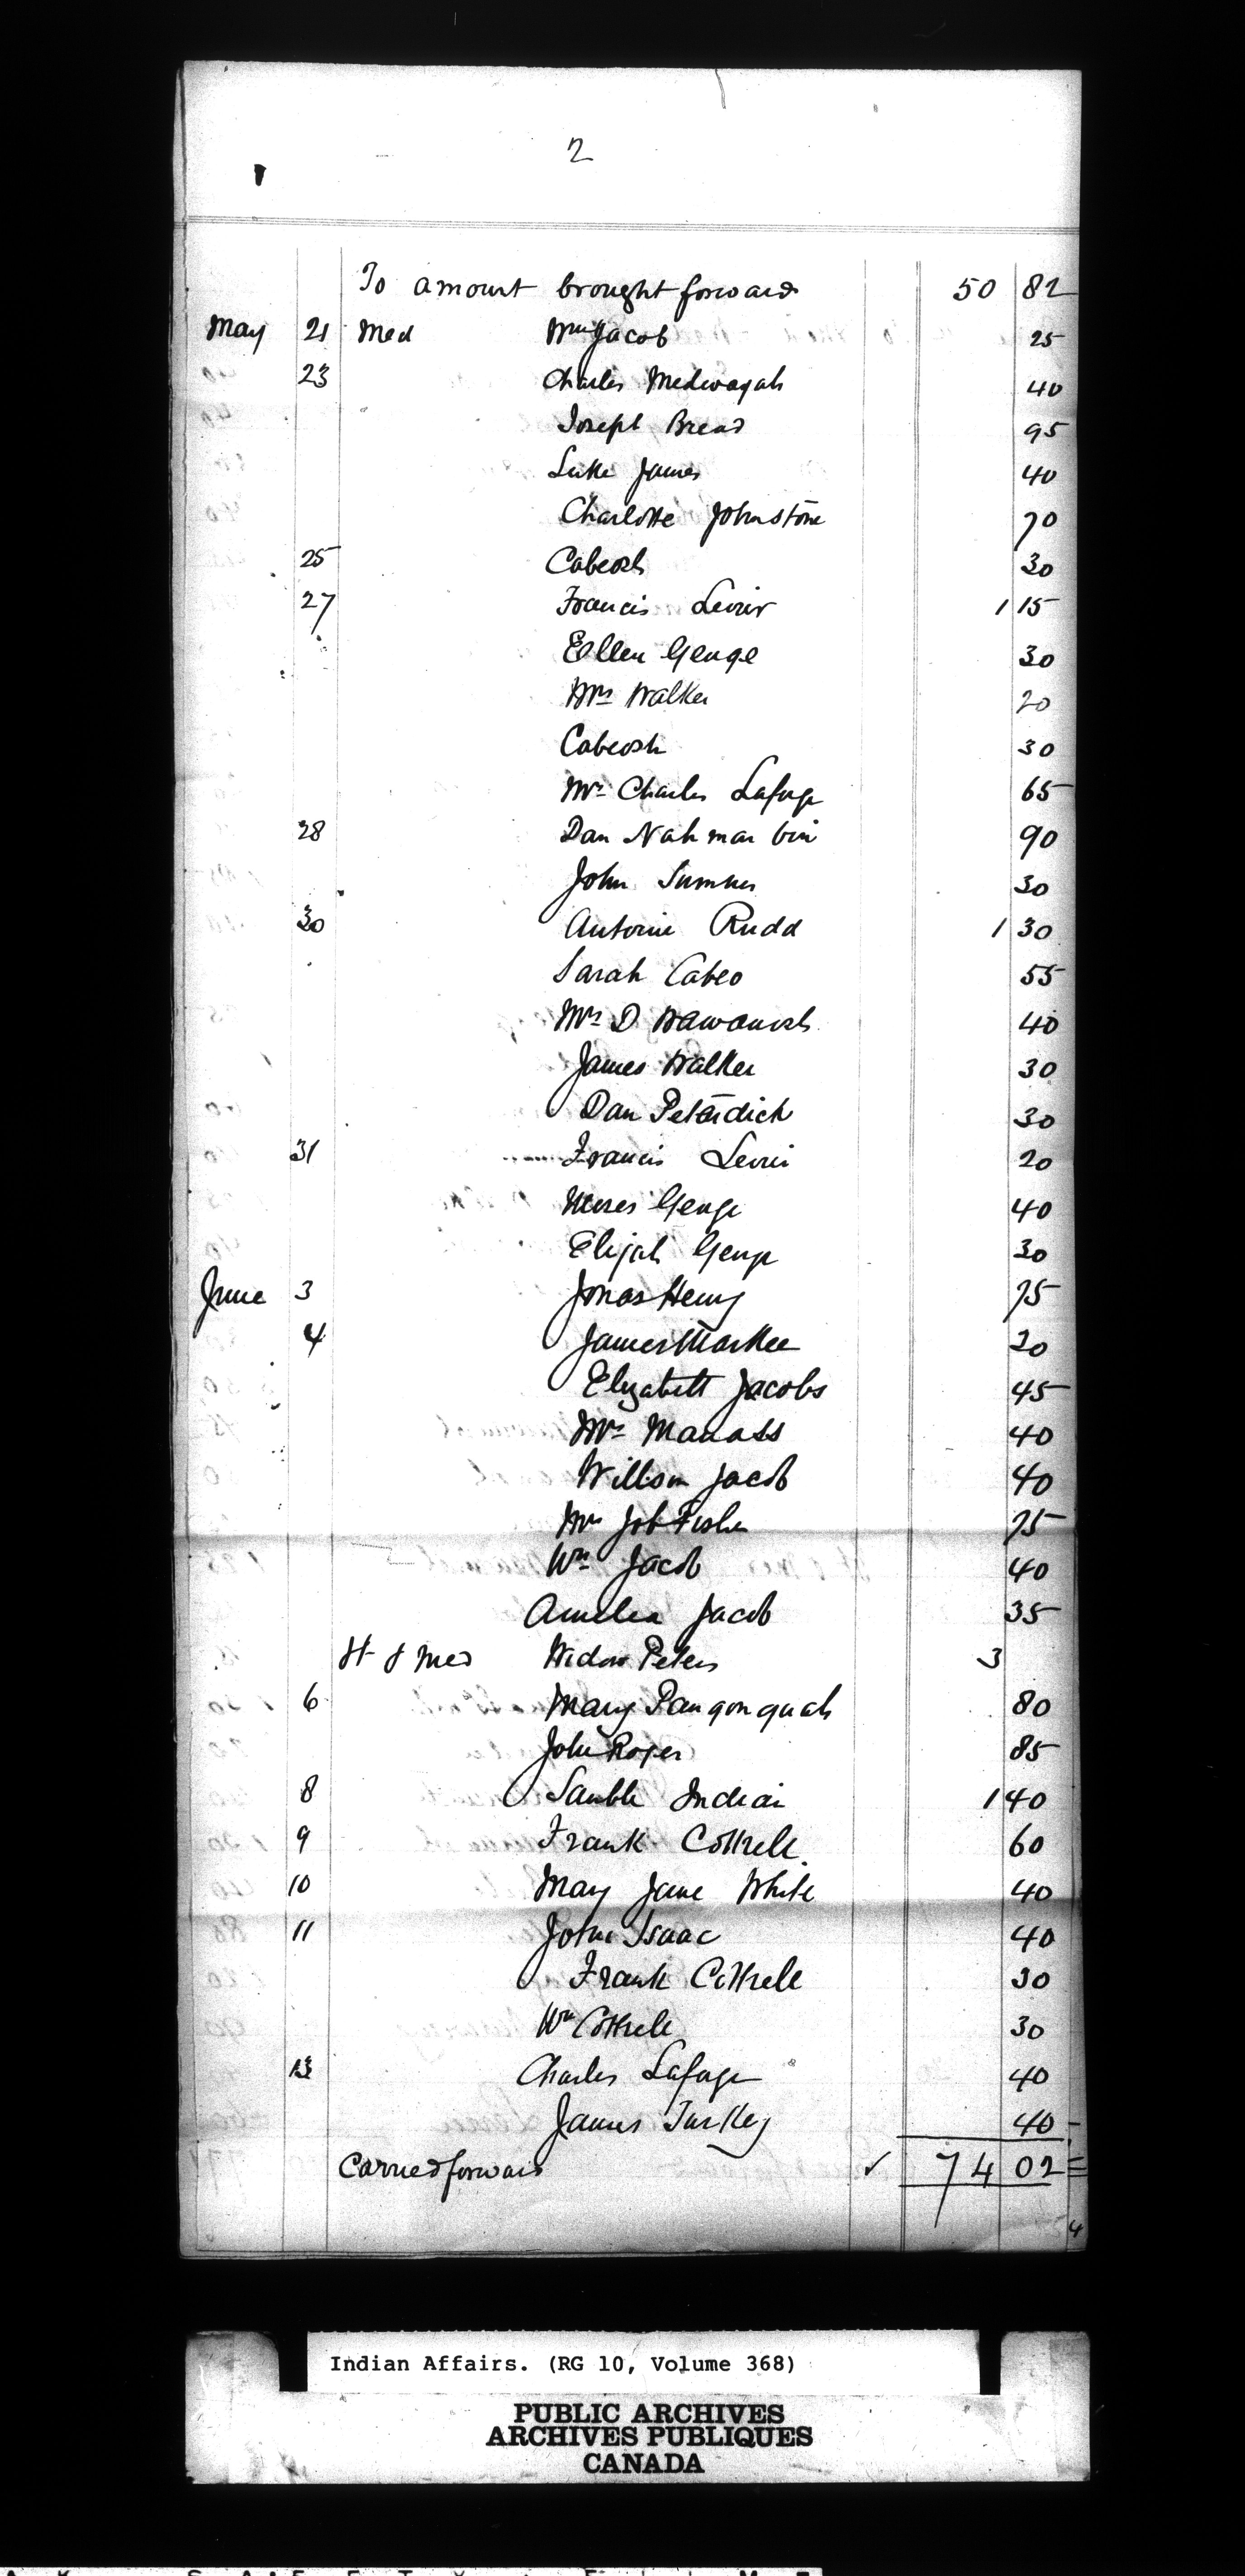 2
To amount brought forward 50 82
May 21 Med Wm Jacob 25
23 Charles Medwagah 40
Joseph Bread 95
Luke James 40
Charlotte Johnstone 70
25 Cabeosh 30
27 Francis Levier 1 15
Ellen George 30
Mrs Walker 20
Cabeosh 30
Mrs Charles Laforge 65
28 Dan Nahmabin 90
John Sumner 30
30 Antoine Rudd 1 30
Sarah Cabeo 55
Mrs D Wawanosh 40
James Walker 30
Dan Peterdick 30
31 Francis Levier 20
Moses George 40
Elijah George 30
June 3 Jonas Henry 75
4 James Markee 20
Elizabeth Jacobs 45
Mrs Manass 40
Willson Jacob 40
Mrs Job Fisher 75
Wm Jacob 40
Amelia Jacob 35
& Med Widow Peters 3
6 Mary Pangonquah 80
John Roger 85
8 Sauble Indian 1 40
9 Frank Cottrell 60
10 Mary Jane White 40
11 John Isaac 40
Frank Cottrell 30
Wm Cottrell 30
13 Charles Laforge 40
James Turkey 40
Carried forward ✓ 74 02
4
Indian Affairs. (RG 10, Volume 368)
PUBLIC ARCHIVES
ARCHIVES PUBLIQUES
CANADA